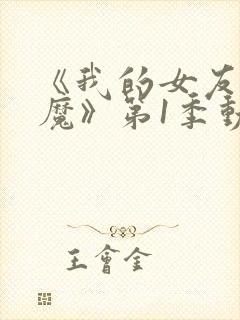 《我的女友
魔》第1季動
王會金